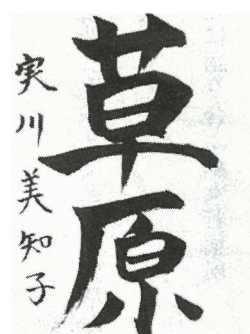 草原
実川美知子